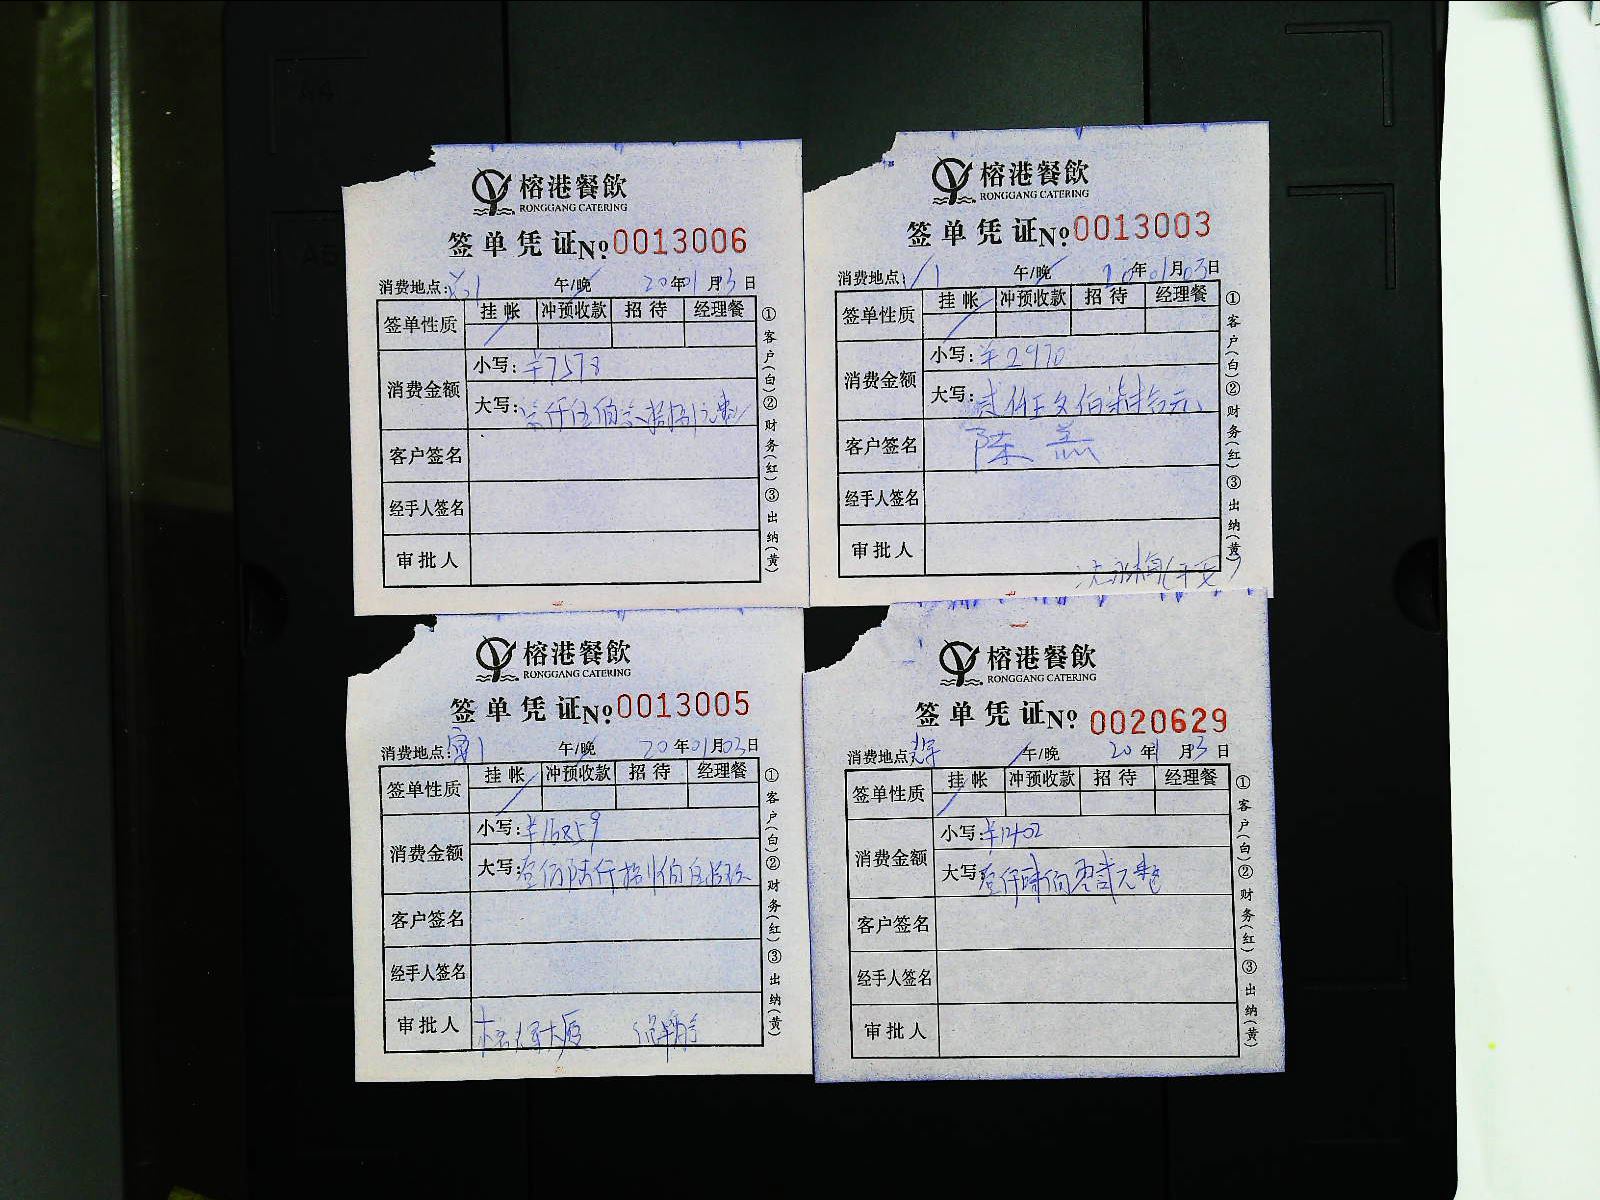 榕港餐飲
RONGGANG CATERING
签单凭证 No 0013006
消费地点: 午/晚 20年01月3日
签单性质 挂帐 冲预收款 招待 经理餐
消费金额 小写:¥7578
大写:
客户签名
经手人签名
审批人
①客户(白)②财务(红)③出纳(黄)
榕港餐飲
RONGGANG CATERING
签单凭证 No 0013003
消费地点: 午/晚 20年01月03日
签单性质 挂帐 冲预收款 招待 经理餐
消费金额 小写:¥2970
大写:贰仟玖佰柒拾元
客户签名
经手人签名
审批人
①客户(白)②财务(红)③出纳(黄)
榕港餐飲
RONGGANG CATERING
签单凭证 No 0013005
消费地点: 午/晚 20年01月03日
签单性质 挂帐 冲预收款 招待 经理餐
消费金额 小写:¥16859
大写:
客户签名
经手人签名
审批人
①客户(白)②财务(红)③出纳(黄)
榕港餐飲
RONGGANG CATERING
签单凭证 No 0020629
消费地点: 午/晚 20年1月3日
签单性质 挂帐 冲预收款 招待 经理餐
消费金额 小写:¥1402
大写:
客户签名
经手人签名
审批人
①客户(白)②财务(红)③出纳(黄)